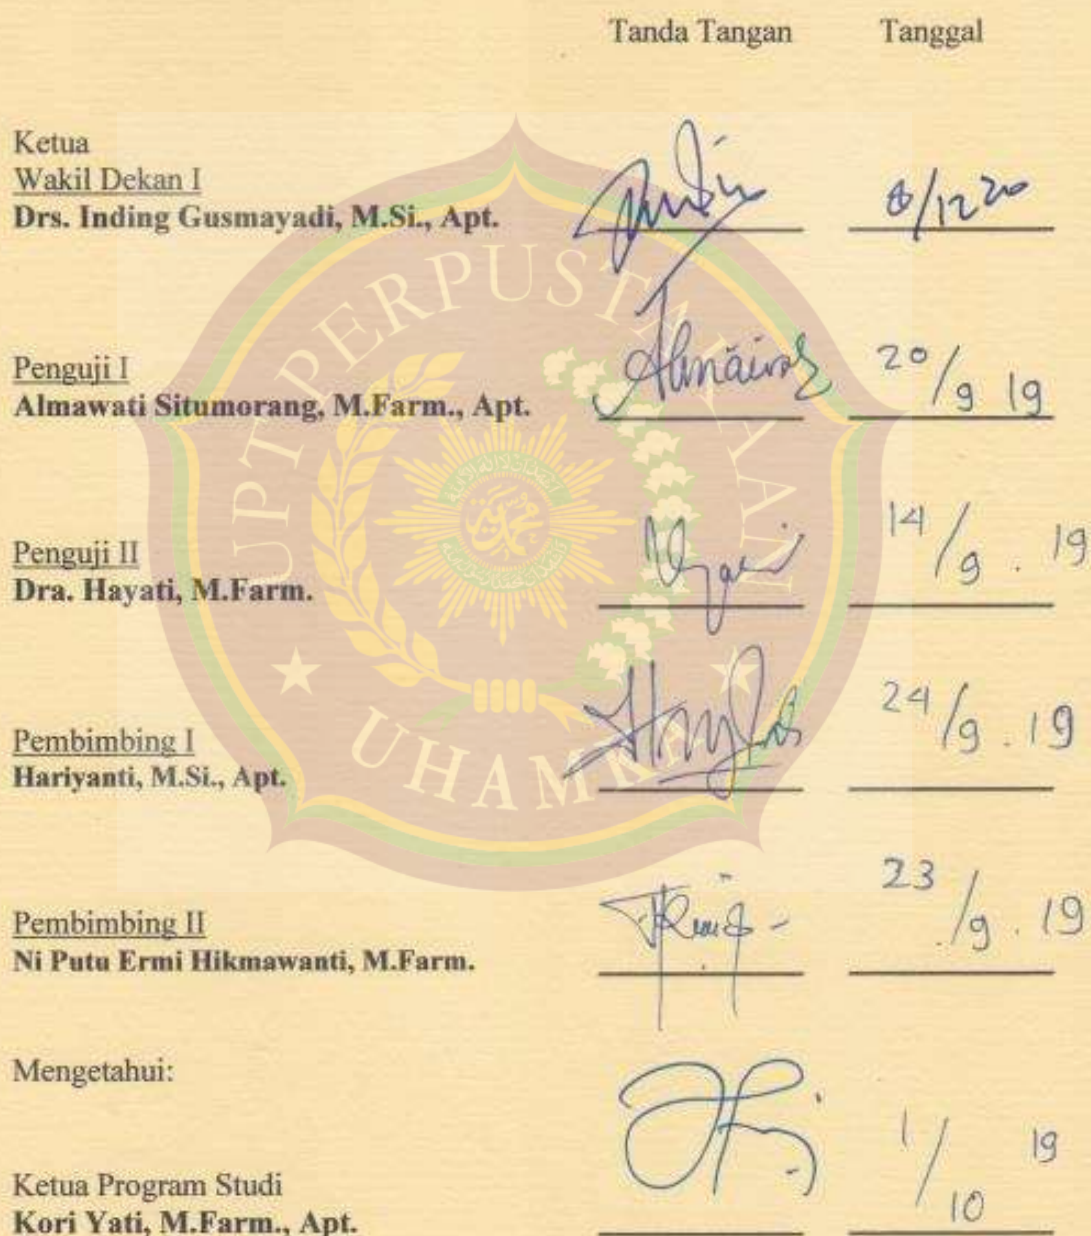 Tanda Tangan Tanggal
Ketua
Wakil Dekan I
Drs. Inding Gusmayadi, M.Si., Apt. 8/12 20
Penguji I
Almawati Situmorang, M.Farm., Apt. 20/9 19
Penguji II
Dra. Hayati, M.Farm. 14/9 . 19
Pembimbing I
Hariyanti, M.Si., Apt. 24/9 . 19
Pembimbing II
Ni Putu Ermi Hikmawanti, M.Farm. 23/9 . 19
Mengetahui:
Ketua Program Studi
Kori Yati, M.Farm., Apt. 1/10 19
UPT PERPUSTAKAAN
UHAMKA